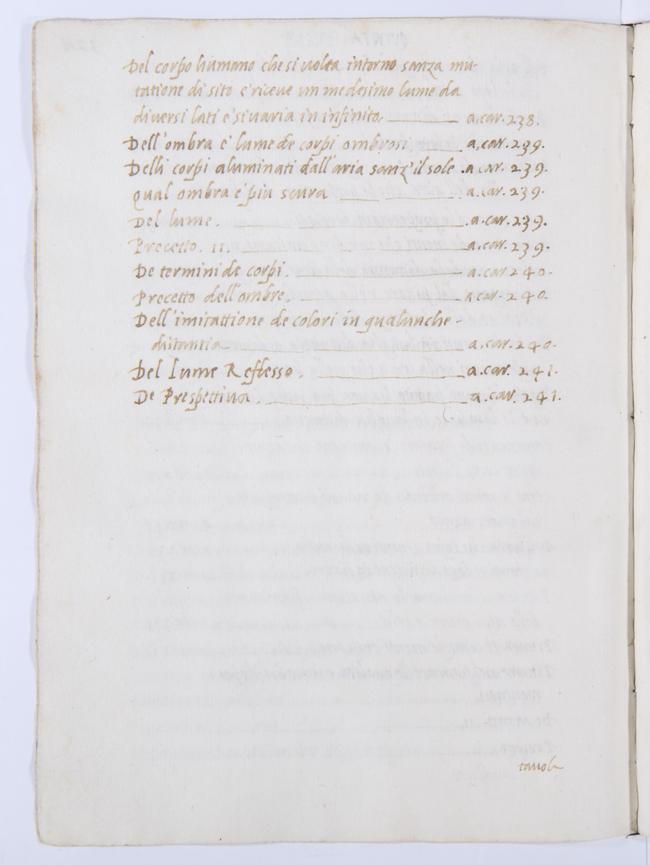 Del corpo humano che si uolta intorno sanza mu-
tatione di sito e' riceue un medesimo lume da
diuersi lati e' si uaria in infinito a car. 238.
Dell'ombra e' lume de corpi ombrosi a. car. 239.
Delli corpi aluminati dall'aria sanz' il sole . a. car. 239.
qual ombra e' piu scura a. car. 239.
Del lume. a. car. 239.
Precetto. II. a. car. 239.
De termini de corpi. a. car. 240.
Precetto dell'ombre. a. car. 240.
Dell'imitattione de colori in qualunche -
distantia a. car. 240.
Del lume Reflesso. a. car. 241.
De Prespettiua. a. car. 241.
tauol